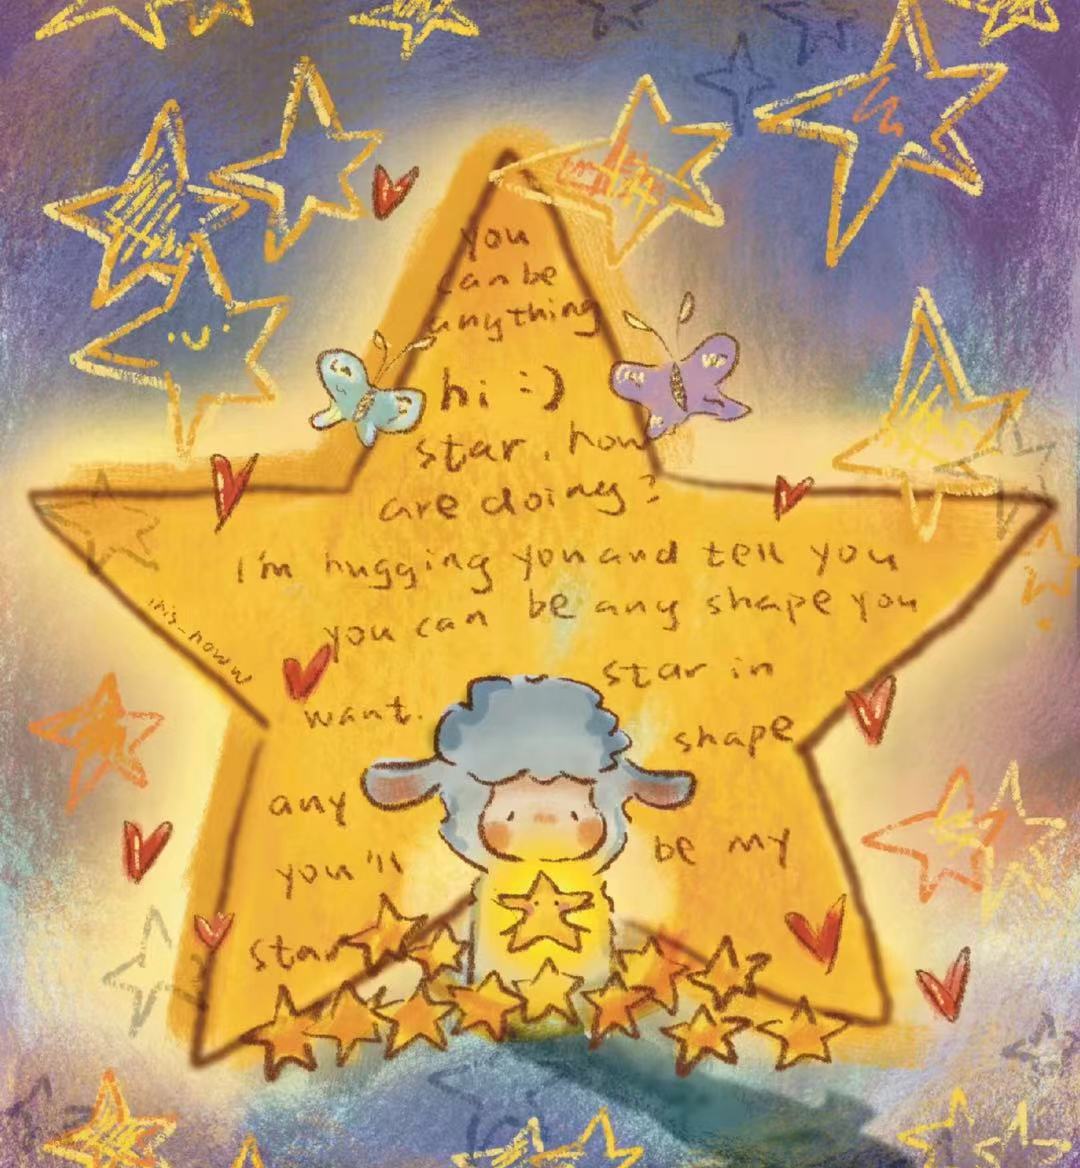 you
can be
anything
hi :)
star, how
are doing?
I'm hugging you and tell you
you can be any shape you
want.
star in
any shape
you'll be my
star